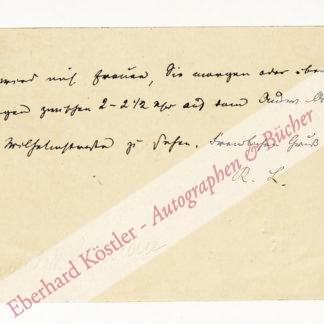 wird mich freuen, Sie morgen oder über
gen zwischen 2-2 1/2 Uhr auf dem
Wilhelmstraße zu sehen. Freundlichen Gruß
R. L.
Eberhard Köstler - Autographen & Bücher